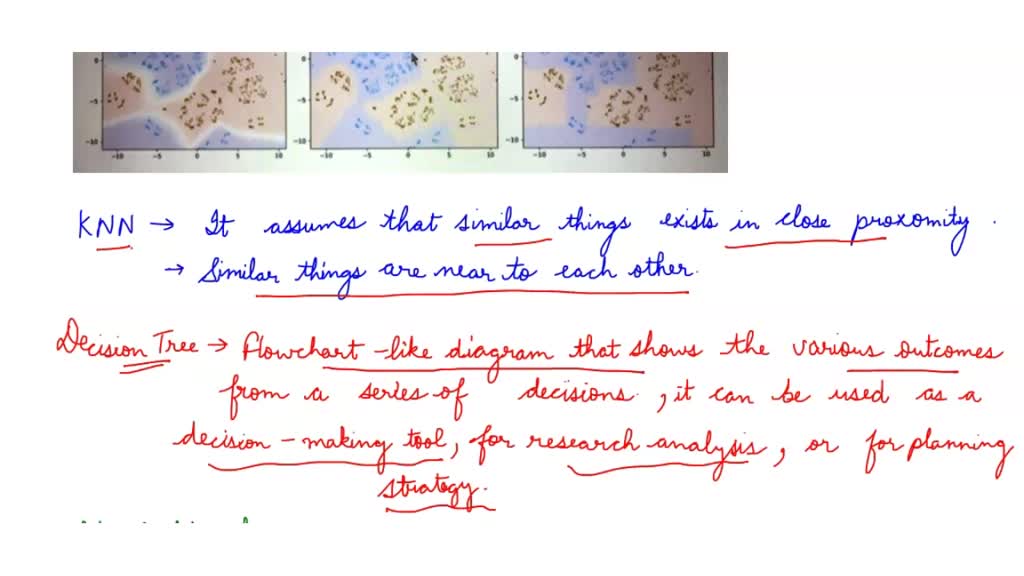 0 0
-5 -5 -5
-10 -10 -10
-10 -5 0 5 10 -10 -5 0 5 10 -10 -5 0 5 10
KNN → It assumes that similar things exists in close proxomity .
→ Similar things are near to each other.
Decision Tree → Flowchart -like diagram that shows the various outcomes
from a series of decisions , it can be used as a
decision - making tool, for research analysis , or for planning
strategy.